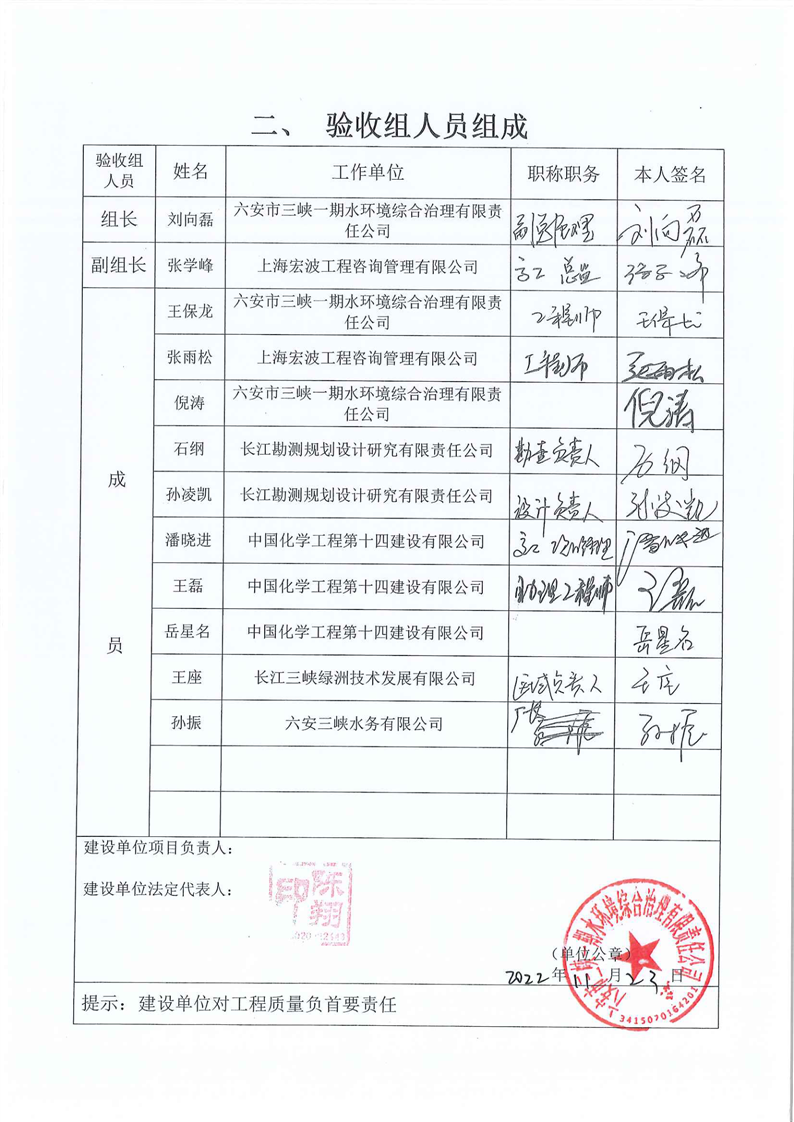 二、 验收组人员组成
验收组人员 姓名 工作单位 职称职务 本人签名
组长 刘向磊 六安市三峡一期水环境综合治理有限责任公司 副总经理 刘向磊
副组长 张学峰 上海宏波工程咨询管理有限公司 高工 总监
成员
王保龙 六安市三峡一期水环境综合治理有限责任公司 工程师 王保龙
张雨松 上海宏波工程咨询管理有限公司 工程师 张雨松
倪涛 六安市三峡一期水环境综合治理有限责任公司 倪涛
石纲 长江勘测规划设计研究有限责任公司 勘查负责人 石纲
孙凌凯 长江勘测规划设计研究有限责任公司 设计负责人 孙凌凯
潘晓进 中国化学工程第十四建设有限公司 高工 潘晓进
王磊 中国化学工程第十四建设有限公司 助理工程师 王磊
岳星名 中国化学工程第十四建设有限公司 岳星名
王座 长江三峡绿洲技术发展有限公司 区域负责人 王座
孙振 六安三峡水务有限公司 厂长 孙振
建设单位项目负责人：
建设单位法定代表人：
陈翔印
（单位公章）
2022年11月23日
六安市三峡一期水环境综合治理有限责任公司
3415070164201
提示：建设单位对工程质量负首要责任